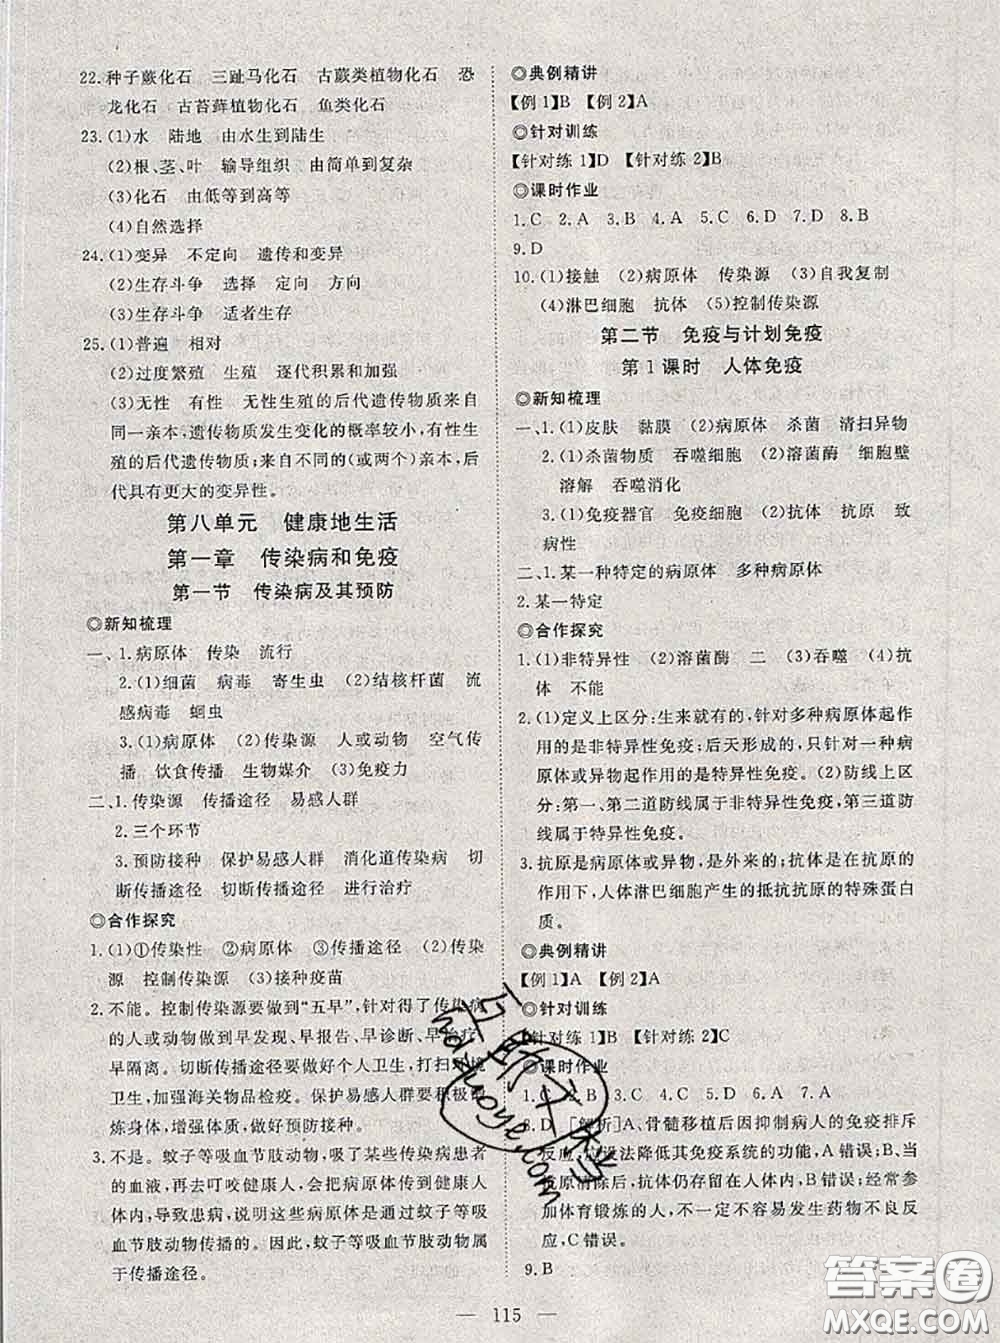 22.种子蕨化石 三趾马化石 古蕨类植物化石 恐
龙化石 古苔藓植物化石 鱼类化石
23.(1)水 陆地 由水生到陆生
(2)根、茎、叶 输导组织 由简单到复杂
(3)化石 由低等到高等
(4)自然选择
24.(1)变异 不定向 遗传和变异
(2)生存斗争 选择 定向 方向
(3)生存斗争 适者生存
25.(1)普遍 相对
(2)过度繁殖 生殖 逐代积累和加强
(3)无性 有性 无性生殖的后代遗传物质来自
同一亲本,遗传物质发生变化的概率较小,有性生
殖的后代遗传物质;来自不同的(或两个)亲本,后
代具有更大的变异性。
第八单元 健康地生活
第一章 传染病和免疫
第一节 传染病及其预防
◎新知梳理
一、1.病原体 传染 流行
2.(1)细菌 病毒 寄生虫 (2)结核杆菌 流
感病毒 蛔虫
3.(1)病原体 (2)传染源 人或动物 空气传
播 饮食传播 生物媒介 (3)免疫力
二、1.传染源 传播途径 易感人群
2.三个环节
3.预防接种 保护易感人群 消化道传染病 切
断传播途径 切断传播途径 进行治疗
◎合作探究
1.(1)①传染性 ②病原体 ③传播途径 (2)传染
源 控制传染源 (3)接种疫苗
2.不能。控制传染源要做到“五早”,针对得了传染病
的人或动物做到早发现、早报告、早诊断、早治疗、
早隔离。切断传播途径要做好个人卫生,打扫环境
卫生,加强海关物品检疫。保护易感人群要积极锻
炼身体,增强体质,做好预防接种。
3.不是。蚊子等吸血节肢动物,吸了某些传染病患者
的血液,再去叮咬健康人,会把病原体传到健康人
体内,导致患病,说明这些病原体是通过蚊子等吸
血节肢动物传播的。因此,蚊子等吸血节肢动物属
于传播途径。
◎典例精讲
【例1】B 【例2】A
◎针对训练
【针对练1】D 【针对练2】B
◎课时作业
1.C 2.A 3.B 4.A 5.C 6.D 7.D 8.B
9.D
10.(1)接触 (2)病原体 传染源 (3)自我复制
(4)淋巴细胞 抗体 (5)控制传染源
第二节 免疫与计划免疫
第1课时 人体免疫
◎新知梳理
一、1.(1)皮肤 黏膜 (2)病原体 杀菌 清扫异物
2.(1)杀菌物质 吞噬细胞 (2)溶菌酶 细胞壁
溶解 吞噬消化
3.(1)免疫器官 免疫细胞 (2)抗体 抗原 致
病性
二、1.某一种特定的病原体 多种病原体
2.某一特定
◎合作探究
1.(1)非特异性 (2)溶菌酶 二 (3)吞噬 (4)抗
体 不能
2.(1)定义上区分:生来就有的,针对多种病原体起作
用的是非特异性免疫;后天形成的,只针对一种病
原体或异物起作用的是特异性免疫。(2)防线上区
分:第一、第二道防线属于非特异性免疫,第三道防
线属于特异性免疫。
3.抗原是病原体或异物,是外来的;抗体是在抗原的
作用下,人体淋巴细胞产生的抵抗抗原的特殊蛋白
质。
◎典例精讲
【例1】A 【例2】A
◎针对训练
【针对练1】B 【针对练2】C
◎课时作业
1.C 2.B 3.C 4.C 5.D 6.D 7.A
8.D [解析]A、骨髓移植后因抑制病人的免疫排斥
反应,应设法降低其免疫系统的功能,A错误;B、当
抗原清除后,抗体仍存在人体内,B错误;经常
参加体育锻炼的人,不一定不易发生药物不良
反应,C错误。
9.B
115
下载作业精灵
hdzuoye.com
答案圈
MXQE.COM